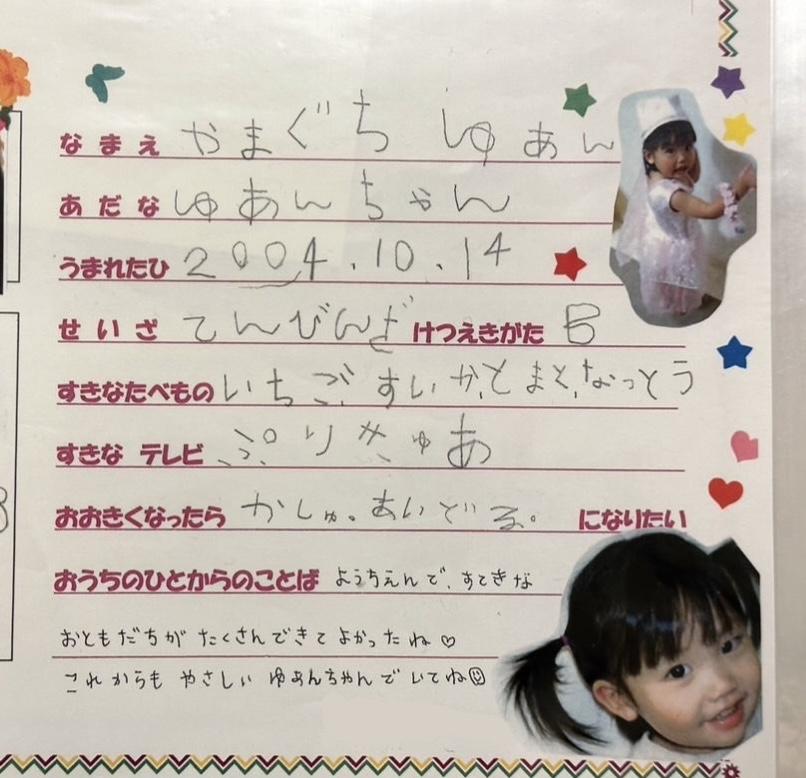 なまえ やまぐち ゆあん
あだな ゆあんちゃん
うまれたひ 2004.10.14
せいざ てんびんざ けつえきがた B
すきなたべもの いちご、すいか、とまと、なっとう
すきな テレビ ぷりきゅあ
おおきくなったら かしゅ。あいどる。 になりたい
おうちのひとからのことば ようちえんで、すてきな
おともだちが たくさんできて よかったね♡
これからも やさしい ゆあんちゃんで いてね☺